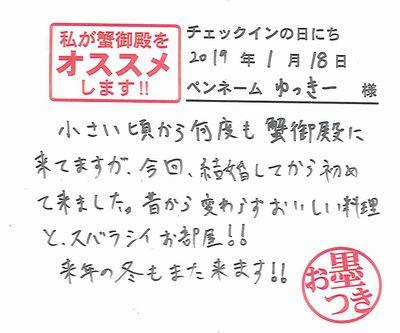 私が蟹御殿を
オススメ
します!!
チェックインの日にち
2019 年 1 月 18 日
ペンネーム ゆっきー 様
小さい頃から何度も 蟹御殿に
来てますが、今回、結婚してから初め
て来ました。昔から変わらずおいしい料理
と、スバラシイお部屋!!
来年の冬もまた来ます!!
お墨つき